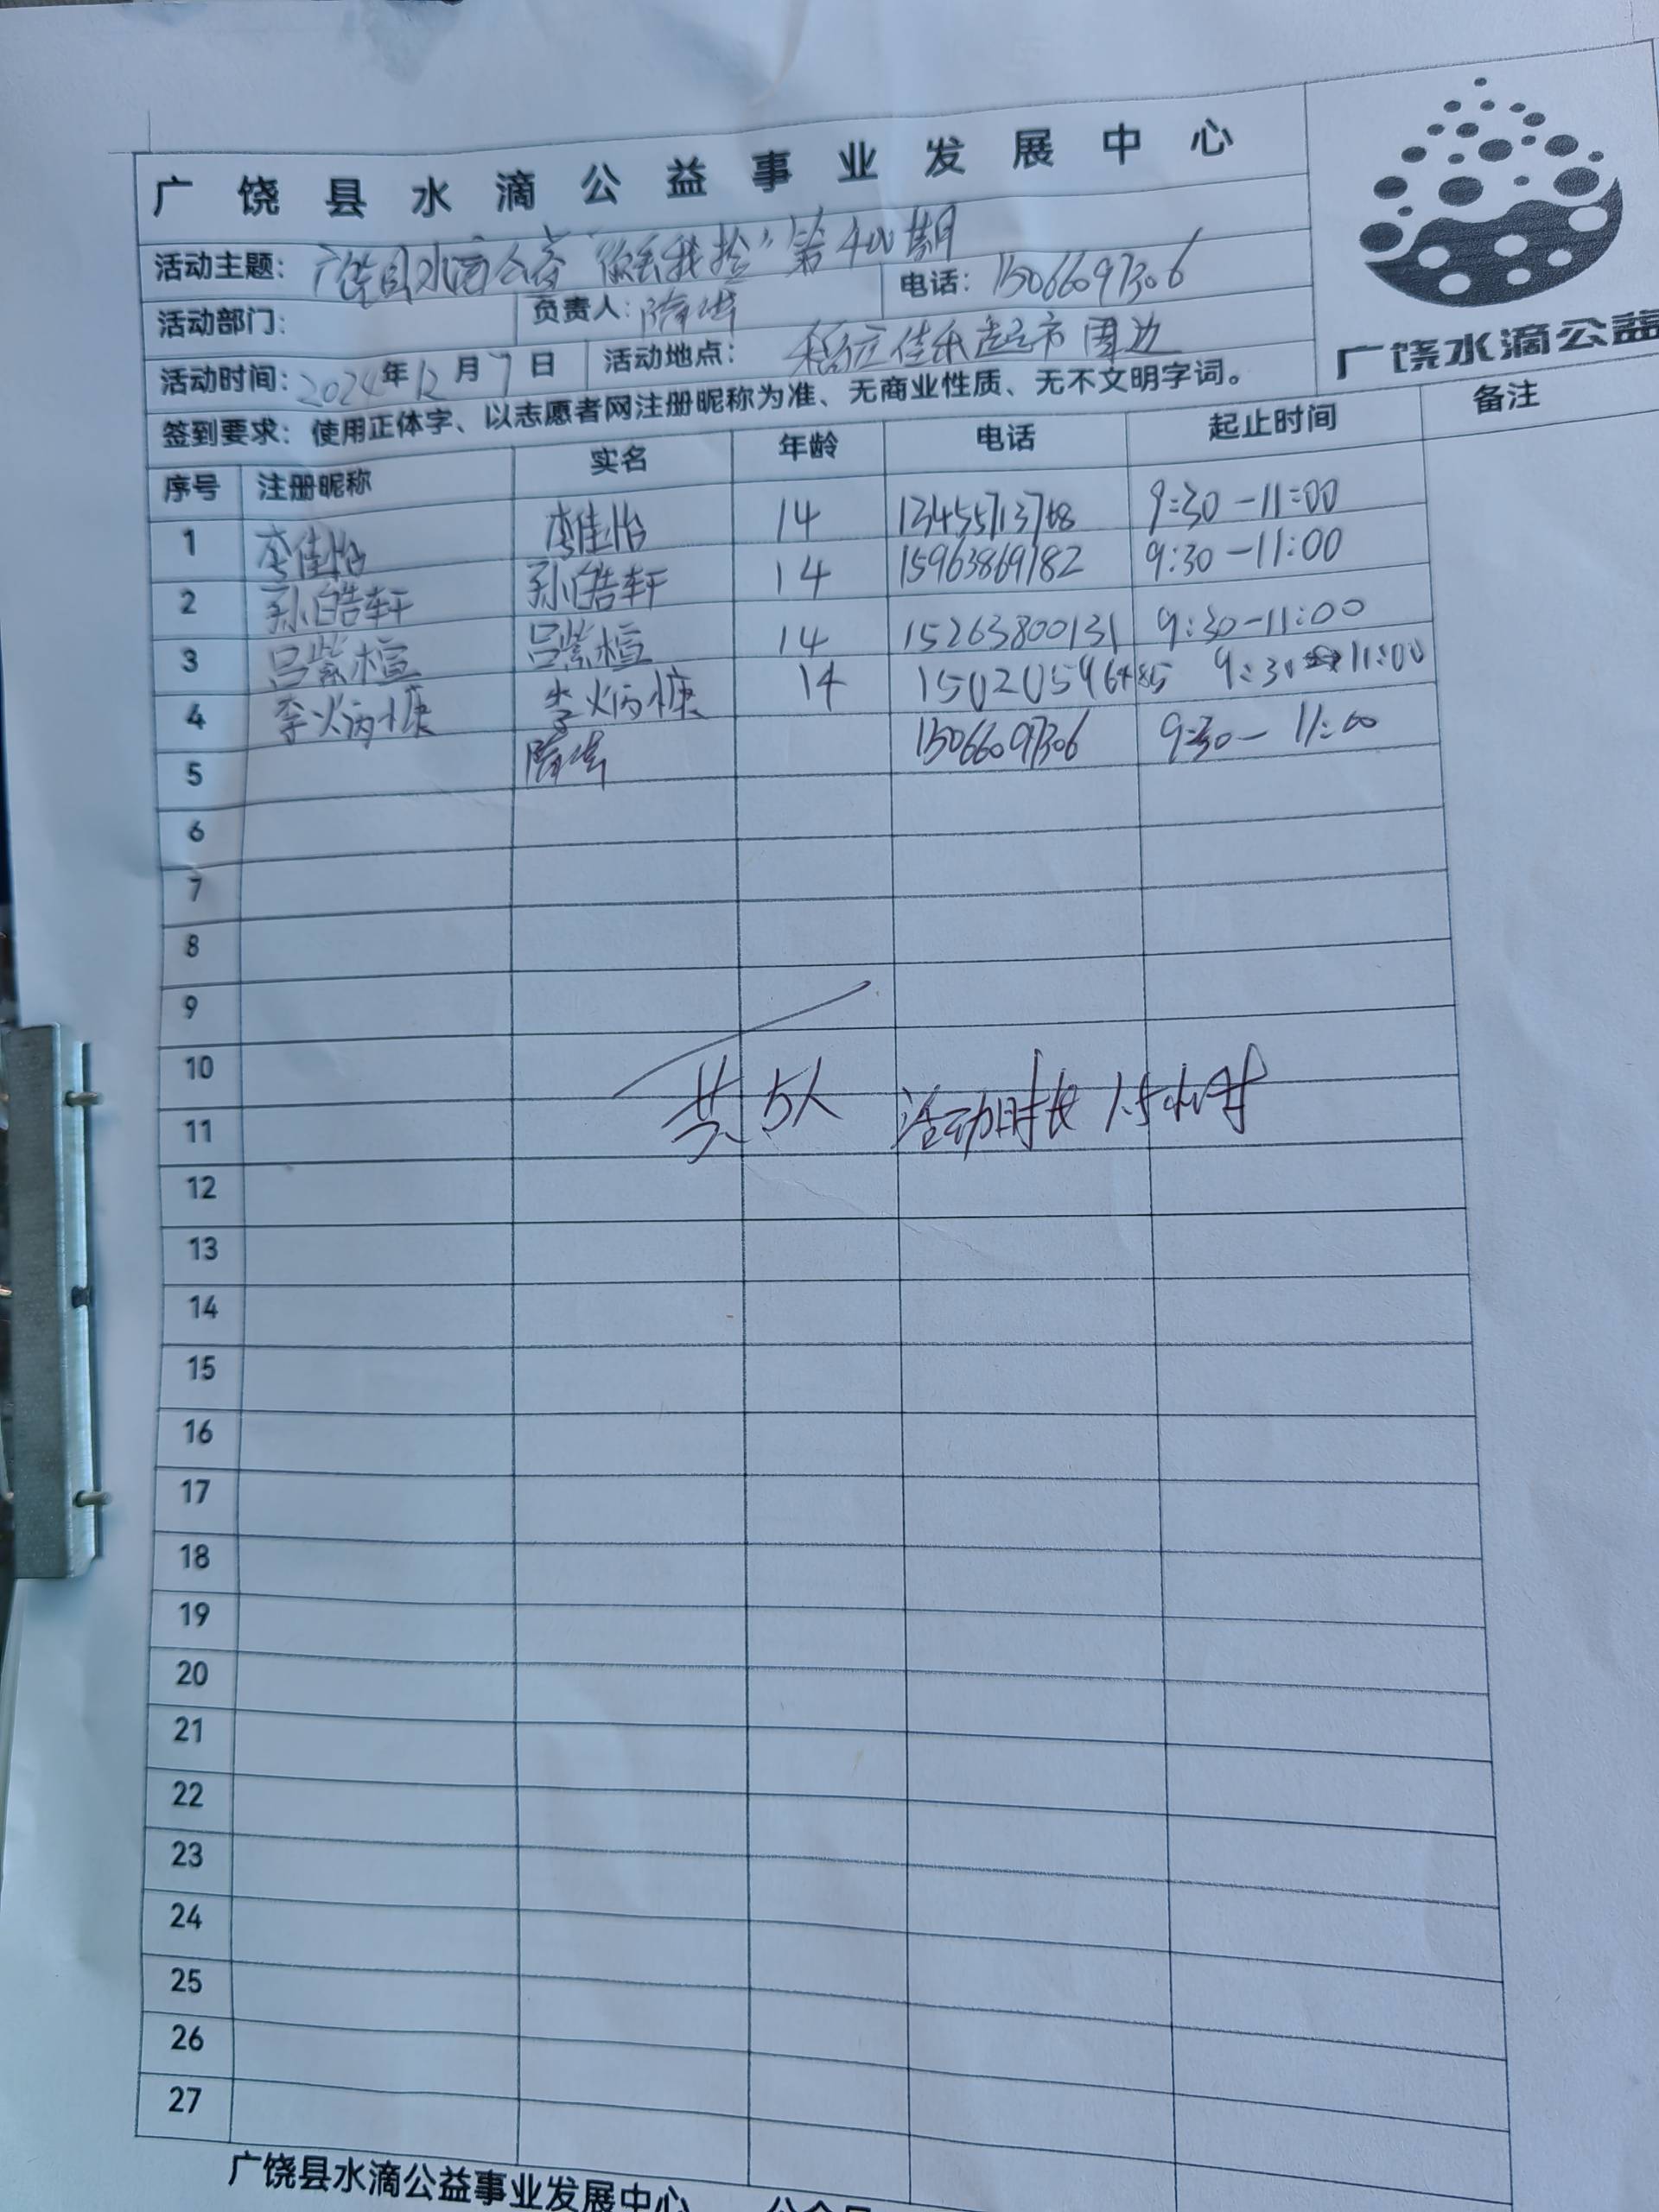 广饶县水滴公益事业发展中心
广饶水滴公益
活动主题：广饶县水滴公益“你丢我捡”第 期
活动部门： 负责人：隋伟 电话：15066097306
活动时间：2024年12月7日 活动地点： 佳乐超市周边
签到要求：使用正体字、以志愿者网注册昵称为准、无商业性质、无不文明字词。
序号 注册昵称 实名 年龄 电话 起止时间 备注
1 李佳怡 李佳怡 14 13455713768 9:30-11:00
2 孙皓轩 孙皓轩 14 15963869182 9:30-11:00
3 吕紫楦 吕紫楦 14 15263800131 9:30-11:00
4 李炳慷 李炳慷 14 9:30 11:00
5 隋伟 15066097306 9:30-11:00
6
7
8
9
10
11 共5人 活动时长1.5小时
12
13
14
15
16
17
18
19
20
21
22
23
24
25
26
27
广饶县水滴公益事业发展中心